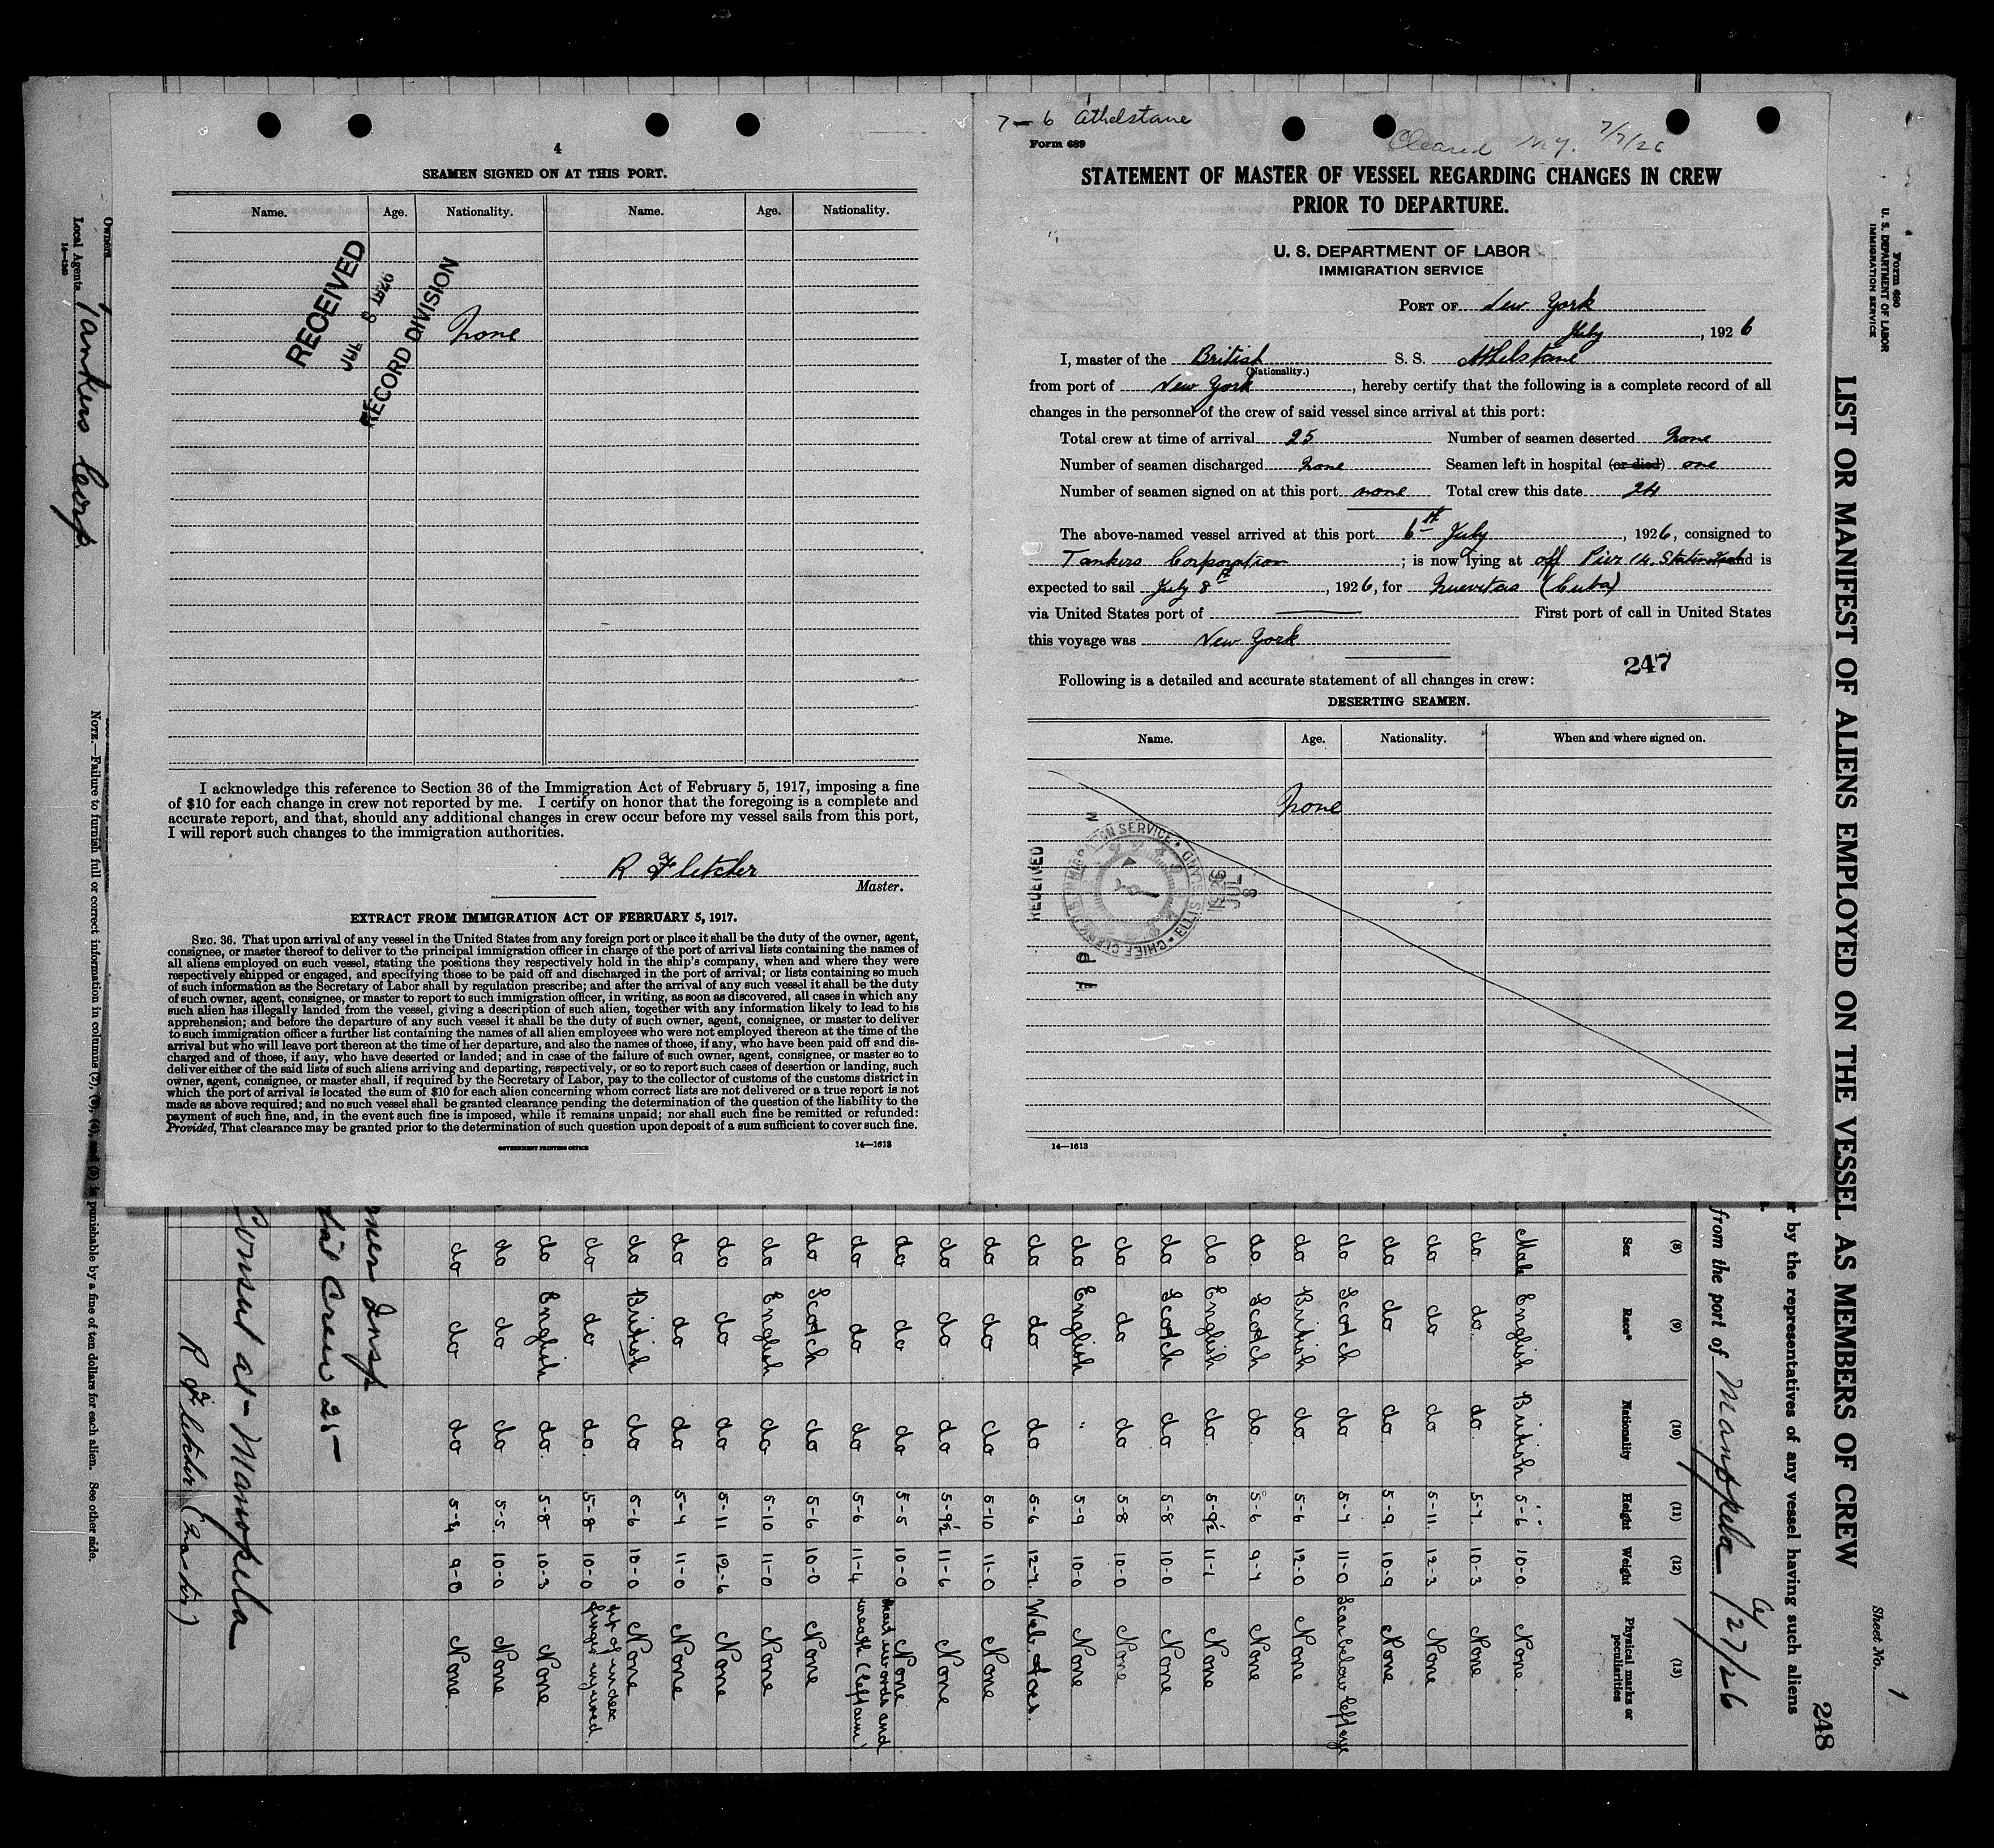 4
SEAMEN SIGNED ON AT THIS PORT.
Name. Age. Nationality. Name. Age. Nationality.
RECEIVED
JUL 8 1926
RECORD DIVISION
None
I acknowledge this reference to Section 36 of the Immigration Act of February 5, 1917, imposing a fine
of $10 for each change in crew not reported by me. I certify on honor that the foregoing is a complete and
accurate report, and that, should any additional changes in crew occur before my vessel sails from this port,
I will report such changes to the immigration authorities.
R Fletcher
Master.
EXTRACT FROM IMMIGRATION ACT OF FEBRUARY 5, 1917.
SEC. 36. That upon arrival of any vessel in the United States from any foreign port or place it shall be the duty of the owner, agent,
consignee, or master thereof to deliver to the principal immigration officer in charge of the port of arrival lists containing the names of
all aliens employed on such vessel, stating the positions they respectively hold in the ship's company, when and where they were
respectively shipped or engaged, and specifying those to be paid off and discharged in the port of arrival; or lists containing so much
of such information as the Secretary of Labor shall by regulation prescribe; and after the arrival of any such vessel it shall be the duty
of such owner, agent, consignee, or master to report to such immigration officer, in writing, as soon as discovered, all cases in which any
such alien has illegally landed from the vessel, giving a description of such alien, together with any information likely to lead to his
apprehension; and before the departure of any such vessel it shall be the duty of such owner, agent, consignee, or master to deliver
to such immigration officer a further list containing the names of all alien employees who were not employed thereon at the time of the
arrival but who will leave port thereon at the time of her departure, and also the names of those, if any, who have been paid off and dis-
charged and of those, if any, who have deserted or landed; and in case of the failure of such owner, agent, consignee, or master so to
deliver either of the said lists of such aliens arriving and departing, respectively, or so to report such cases of desertion or landing, such
owner, agent, consignee, or master shall, if required by the Secretary of Labor, pay to the collector of customs of the customs district in
which the port of arrival is located the sum of $10 for each alien concerning whom correct lists are not delivered or a true report is not
made as above required; and no such vessel shall be granted clearance pending the determination of the question of the liability to the
payment of such fine, and, in the event such fine is imposed, while it remains unpaid; nor shall such fine be remitted or refunded:
Provided, That clearance may be granted prior to the determination of such question upon deposit of a sum sufficient to cover such fine.
GOVERNMENT PRINTING OFFICE 14—1613
7-6 Athelstane
Form 689
Cleared N.Y. 7/7/26
STATEMENT OF MASTER OF VESSEL REGARDING CHANGES IN CREW
PRIOR TO DEPARTURE.
U. S. DEPARTMENT OF LABOR
IMMIGRATION SERVICE
PORT OF New York
July, 1926
I, master of the British S. S. Athelstane
(Nationality.)
from port of New York, hereby certify that the following is a complete record of all
changes in the personnel of the crew of said vessel since arrival at this port:
Total crew at time of arrival 25 Number of seamen deserted None
Number of seamen discharged None Seamen left in hospital (or died) one
Number of seamen signed on at this port none Total crew this date 24
The above-named vessel arrived at this port 6th July, 1926, consigned to
Tankers Corporation; is now lying at off Pier 14. and is
expected to sail July 8th, 1926, for Nuevitas (Cuba)
via United States port of First port of call in United States
this voyage was New York
247
Following is a detailed and accurate statement of all changes in crew:
DESERTING SEAMEN.
Name. Age. Nationality. When and where signed on.
None
RECEIVED
IMMIGRATION SERVICE ELLIS ISLAND CHIEF CLERK
1926 JUL 8
14—1613
Form 680
U. S. DEPARTMENT OF LABOR
IMMIGRATION SERVICE
Sheet No. 1
248
LIST OR MANIFEST OF ALIENS EMPLOYED ON THE VESSEL AS MEMBERS OF CREW
r by the representatives of any vessel having such aliens
from the port of Manopela 27/26
(8) (9) (10) (11) (12) (13)
Sex Race* Nationality Height Weight Physical marks or peculiarities
Male English British 5-6 10-0 None.
do. do. do. 5-7. 10-3 None
do do do 5-11. 12-3 None
do do do 5-9. 10-9 None
do Scotch do 5-7 11-0 Scar below left eye
do British do. 5-6 12-0 None
do. Scotch do. 5-6 9-7 None
do English do. 5-9½ 11-1 None
do Scotch do 5-8 10-0 None
do do do 5-8 10-0 None
do English " 5-9 10-0 None
do do do. 5-6 12-7.
do do do 5-10 11-0 None
do do do 5-9½ 11-6 None
do do do 5-5 10-0 None
do do do 5-6 11-4 words and wreath (left arm)
do Scotch do 5-6 10-0 None
do English do 5-10 11-0 None
do do do 5-11 12-6 None
do do do 5-7 11-0 None
do British do 5-6 10-0 None
do do do. 5-8 10-0 tip of index finger injured.
do English do. 5-8 10-3 None
do do do 5-5. 10-0 None
do do do 5-4 9-0 None.
Insp
Crew 25-
Consul at - Manopela
R Fletcher (Master)
NOTE.—Failure to furnish full or correct information in columns (2), (3), (4), and (5) is punishable by a fine of ten dollars for each alien. See other side.
Owners
Local Agents Tankers Corp.
14—1240